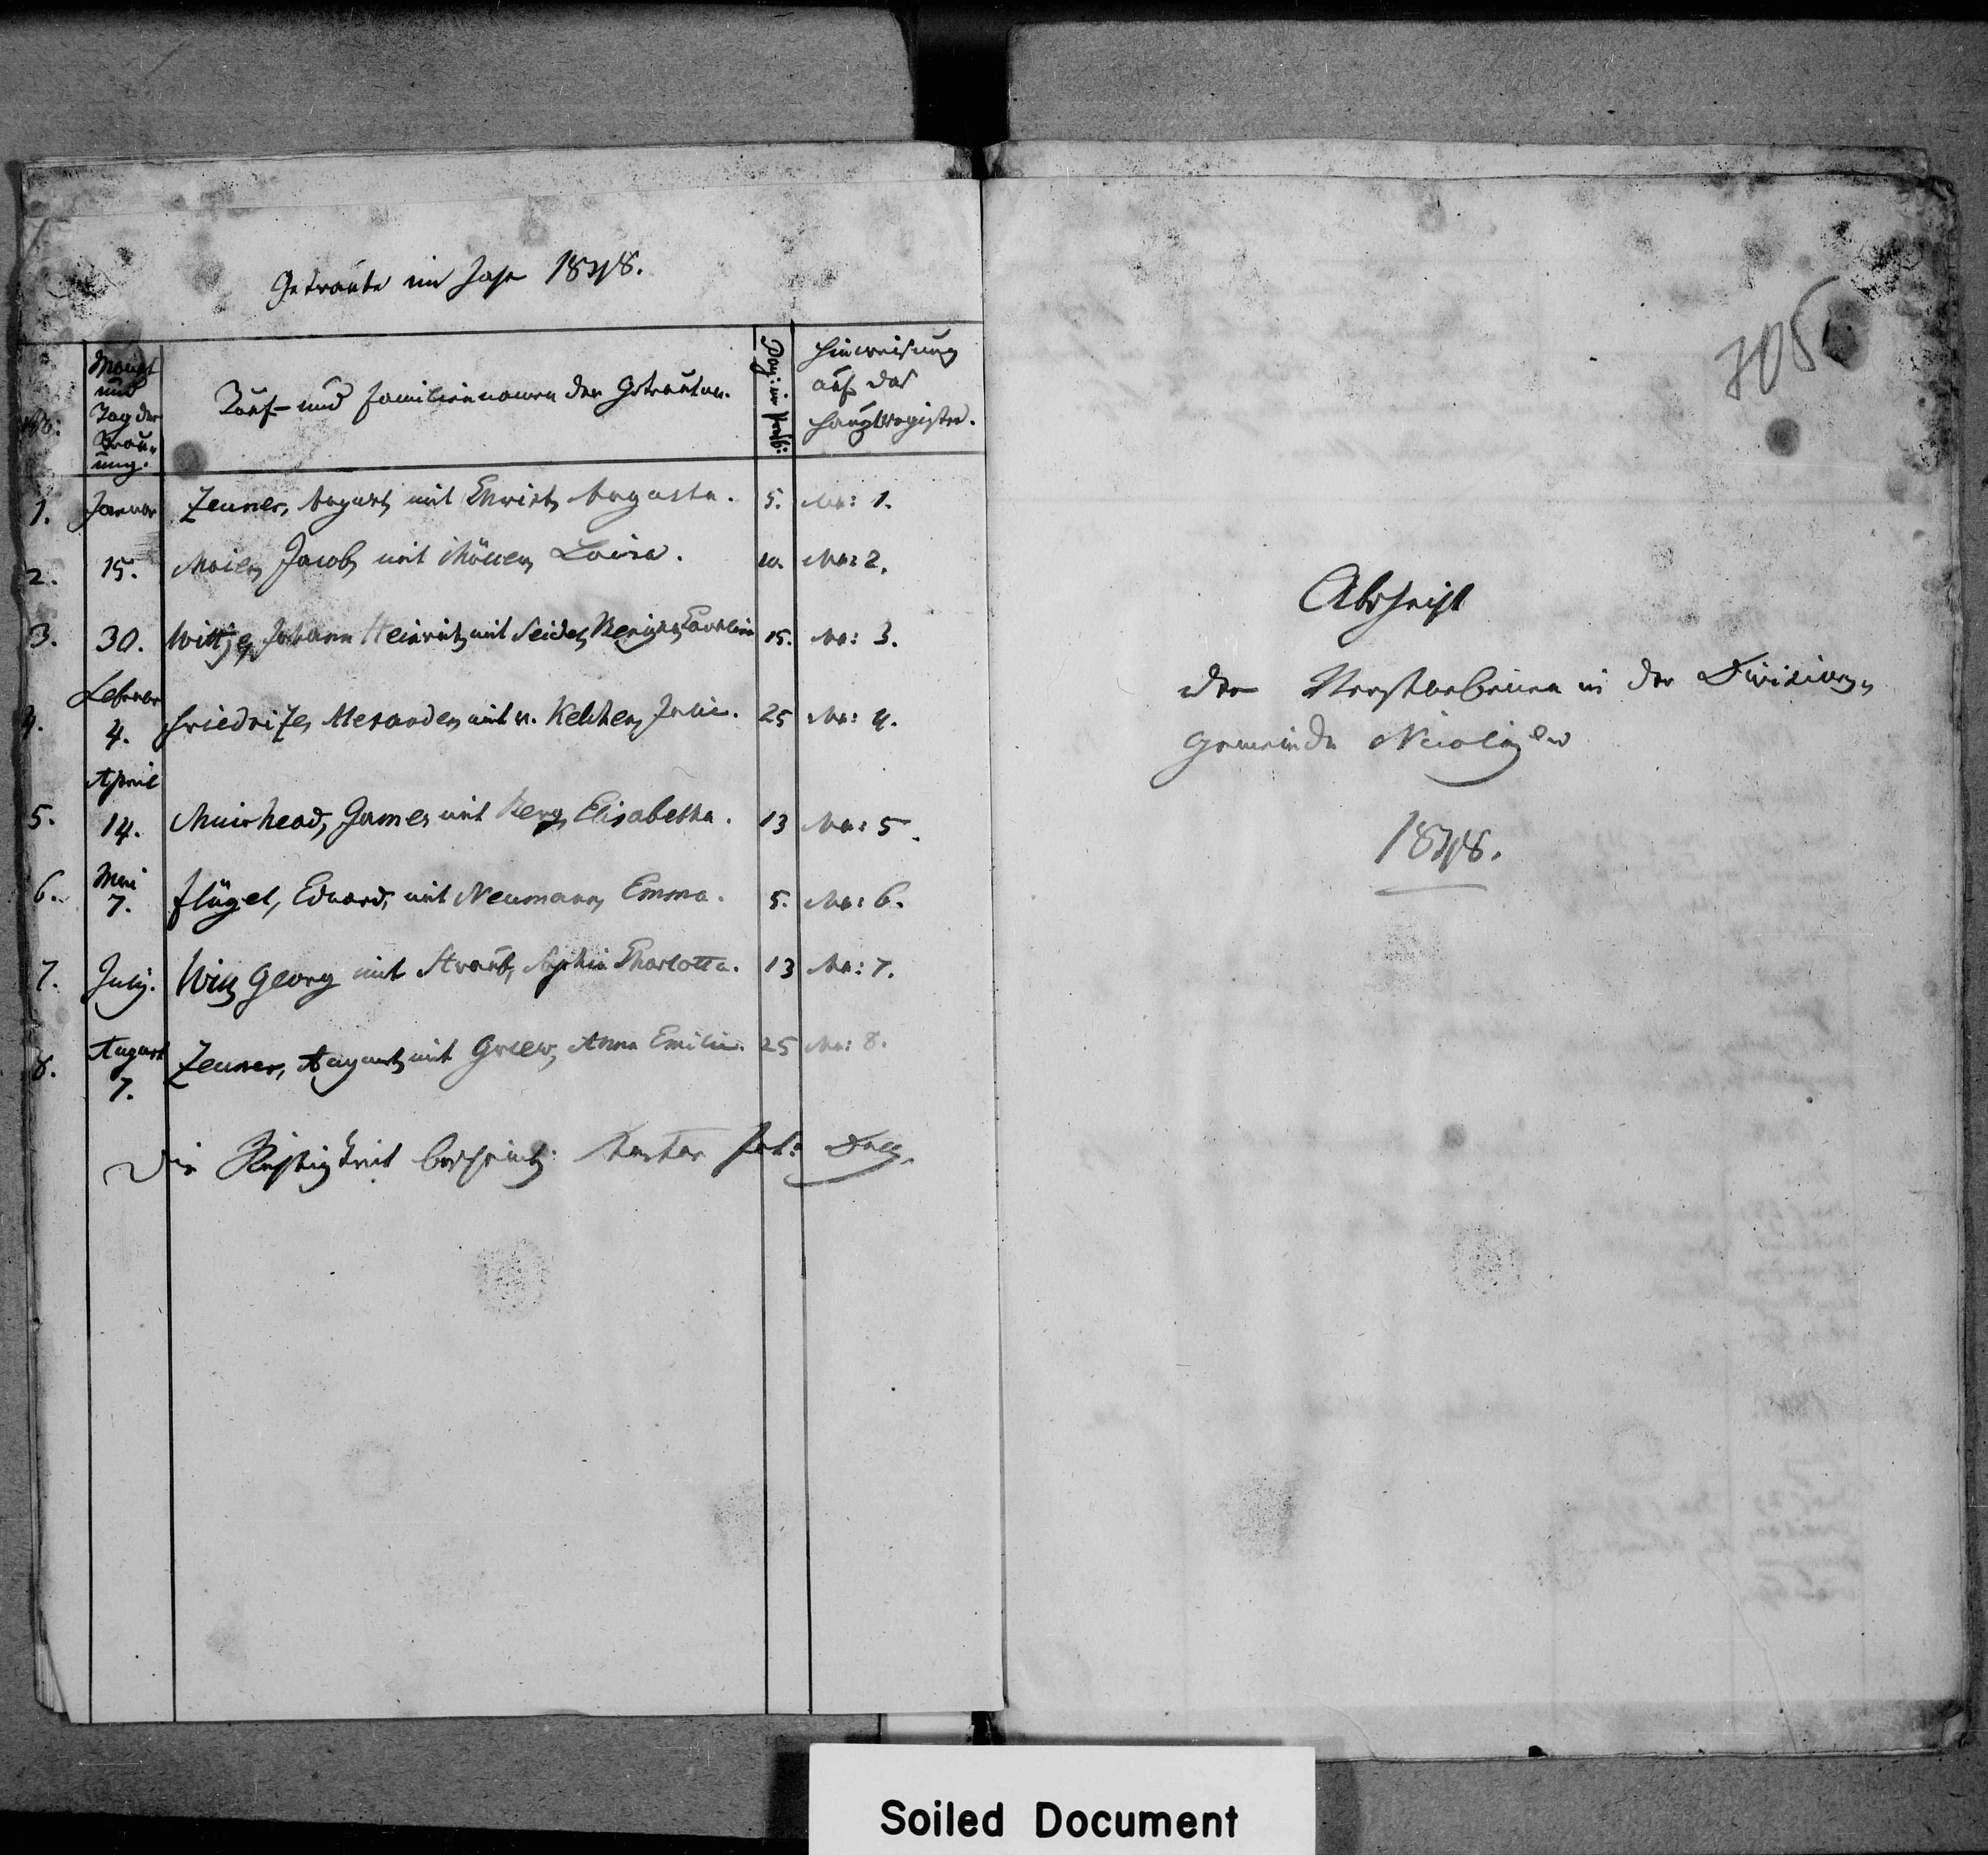 Getraute im Jahr 1848.
No:
Monat
und
Tag der
Trau-
ung.
Tauf- und Familiennamen der Getrauten.
Pag: im
Hinweisung
auf das
Hauptregister.
1. Januar Zeuner, August mit Christ, Augusta. 5. No: 1.
2. 15. Maier, Jacob, mit Louisa. 10. No: 2.
3. 30. Johann Heinrich mit Seidel, 15. No: 3.
Februar
4. 4. Alexander mit v. Kelchen, Julie. 25 No: 4.
April
5. 14. Muirhead, James mit Berg, Elisabetha. 13 No: 5.
Mai
6. 7. Flügel, Eduard, mit Neumann, Emma. 5. No: 6.
7. July. Will, Georg mit Straub, Sophia Charlotta. 13 No: 7.
8. August Zeuner, August, mit Anna Emilie. 25 No: 8.
7.
Die Richtigkeit bescheinigt: Pastor
705
Abschrift
der Verstorbenen in der Divisions-
gemeinde Nicolajew
1848.
Soiled Document